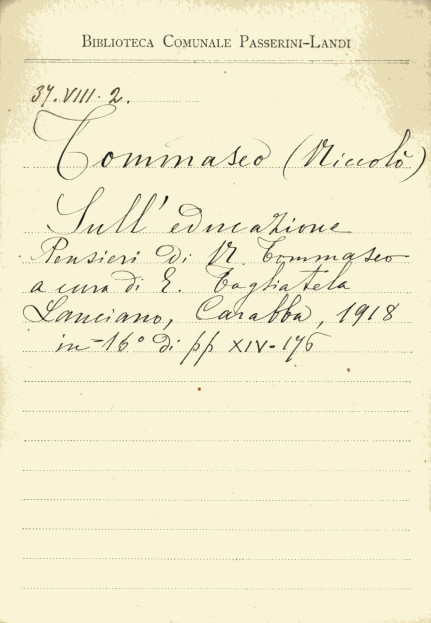 BIBLIOTECA COMUNALE PASSERINI-LANDI
37.VIII.2.
Tommaseo (Niccolò)
Sull'educazione
Pensieri di N. Tommaseo
a cura di E. Tagliatela
Lanciano, Carabba, 1918
in-16° di pp XIV-176